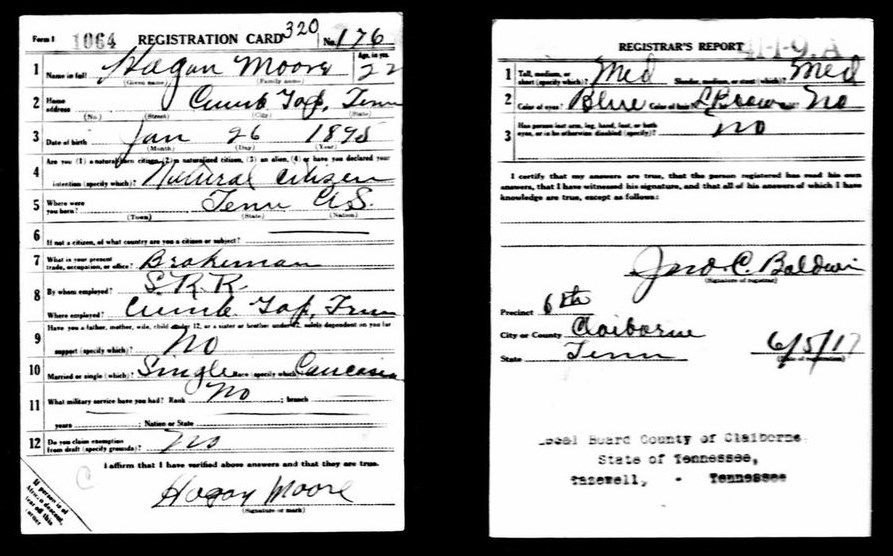 Form 1 1064 REGISTRATION CARD 320 No. 176
1 Name in full Hogan Moore Age, in yrs. 22
(Given name) (Family name)
2 Home address Cumb Gap, Tenn
(No.) (Street) (City) (State)
3 Date of birth Jan 26 1895
(Month) (Day) (Year)
4 Are you (1) a natural born citizen, (2) a naturalized citizen, (3) an alien, (4) or have you declared your
intention (specify which)? Natural citizen
5 Where were you born? Tenn U.S.
(Town) (State) (Nation)
6 If not a citizen, of what country are you a citizen or subject?
7 What is your present trade, occupation, or office? Brakeman
8 By whom employed? S.R.R.
Where employed? Cumb. Gap, Tenn
9 Have you a father, mother, wife, child under 12, or a sister or brother under 12, solely dependent on you for
support (specify which)? No
10 Married or single (which)? Single Race (specify which)? Caucasian
11 What military service have you had? Rank No ; branch
years ; Nation or State
12 Do you claim exemption from draft (specify grounds)? No
I affirm that I have verified above answers and that they are true.
Hogan Moore
(Signature or mark)
If person is of
African descent,
tear off this
corner
REGISTRAR'S REPORT 41-1-9. A
1 Tall, medium, or short (specify which)? Med Slender, medium, or stout (which)? Med
2 Color of eyes? Blue Color of hair? L Brown No
3 Has person lost arm, leg, hand, foot, or both
eyes, or is he otherwise disabled (specify)? No
I certify that my answers are true, that the person registered has read his own
answers, that I have witnessed his signature, and that all of his answers of which I have
knowledge are true, except as follows:
Jno. C. Baldwin
(Signature of registrar)
Precinct 6th
City or County Claiborne
State Tenn 6/5/17
(Date of registration)
Local Board County of Claiborne
State of Tennessee,
Tazewell, - Tennessee